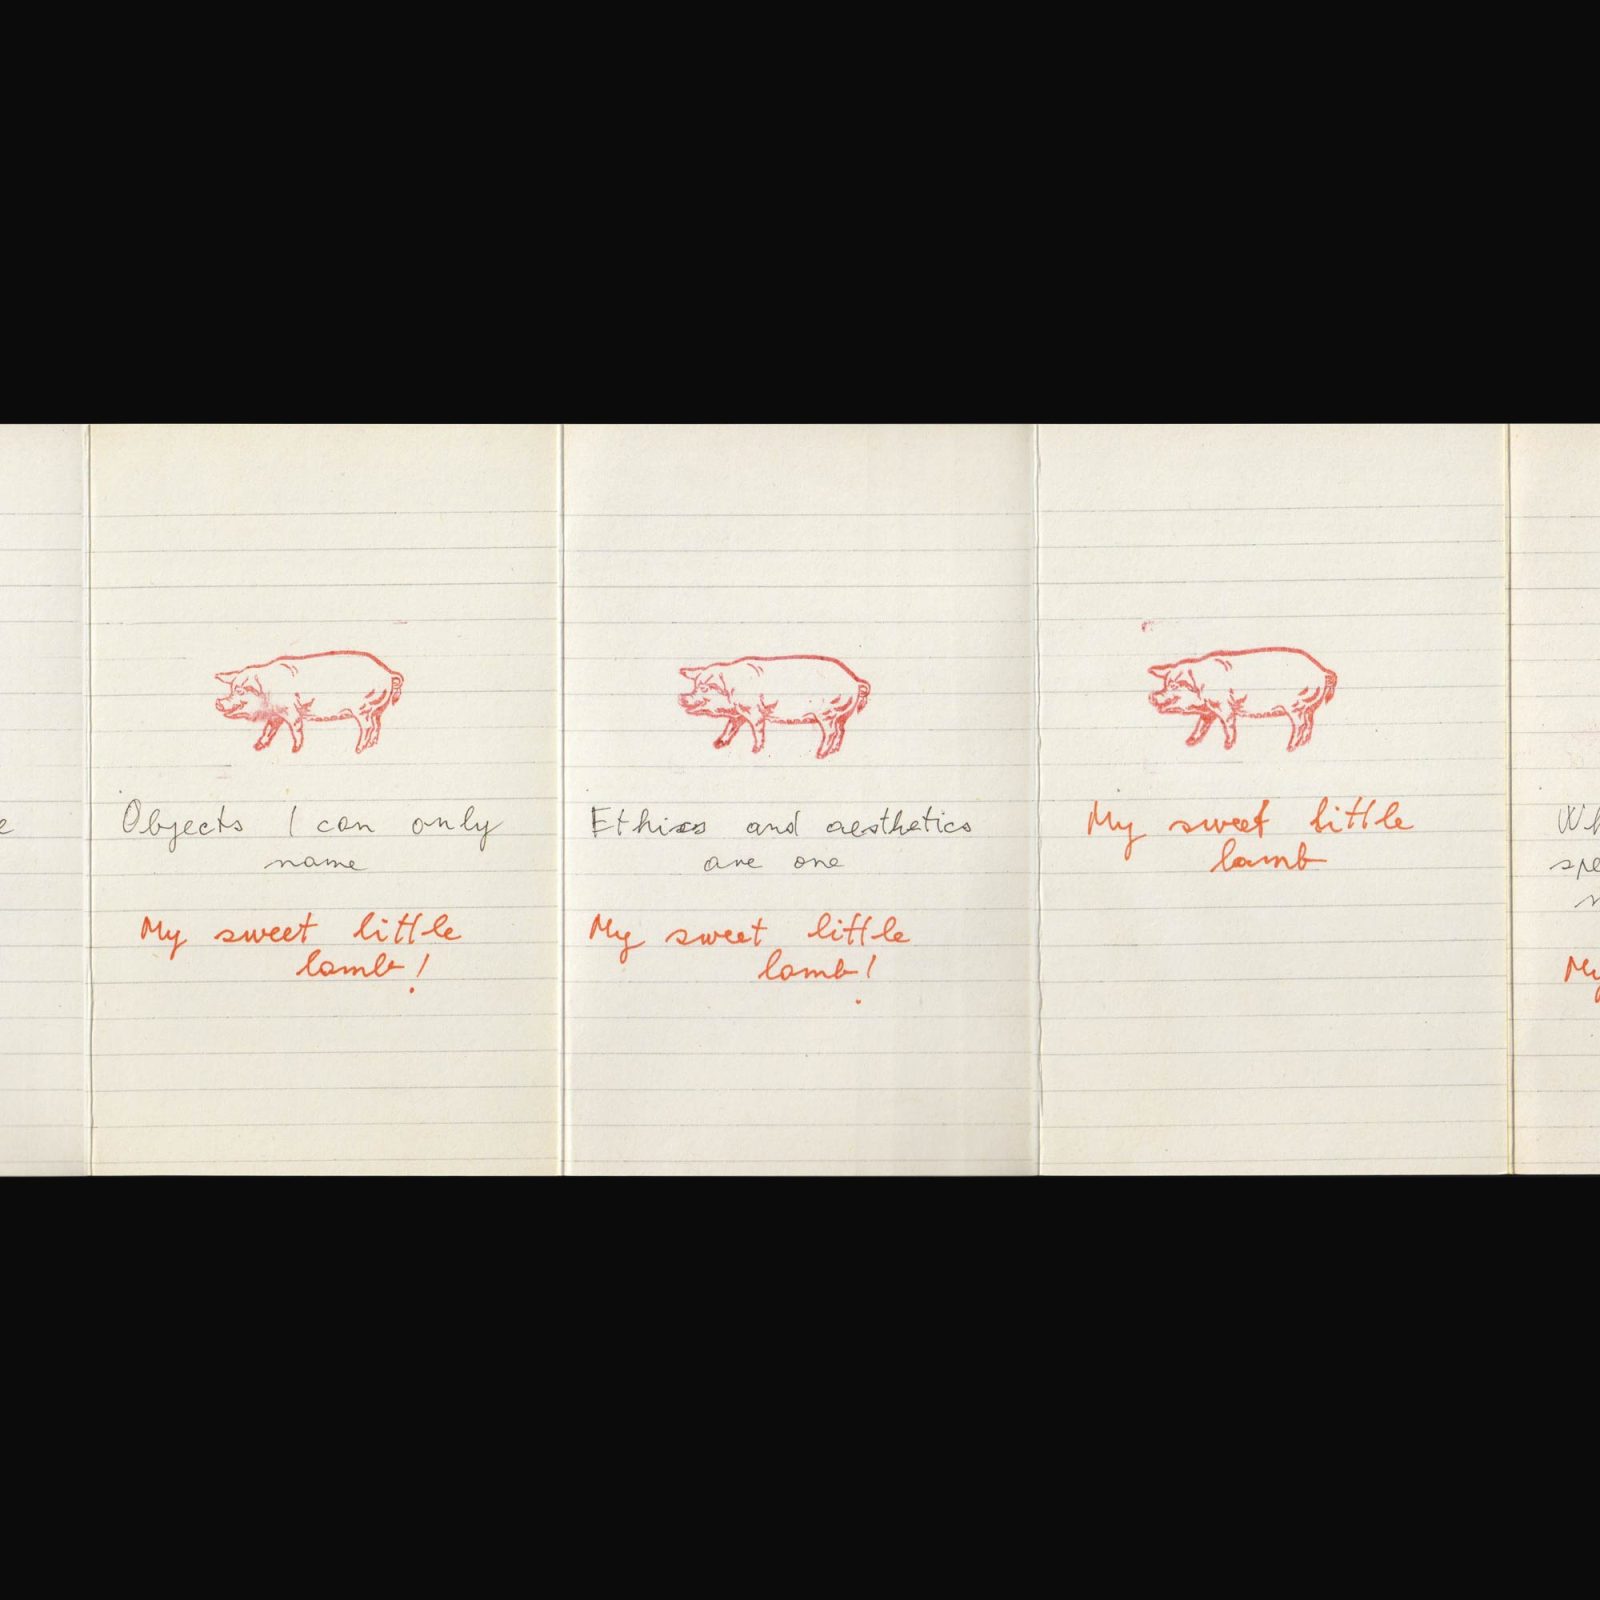 Objects I can only
name
My sweet little
lamb!
Ethics and aesthetics
are one
My sweet little
lamb!
My sweet little
lamb